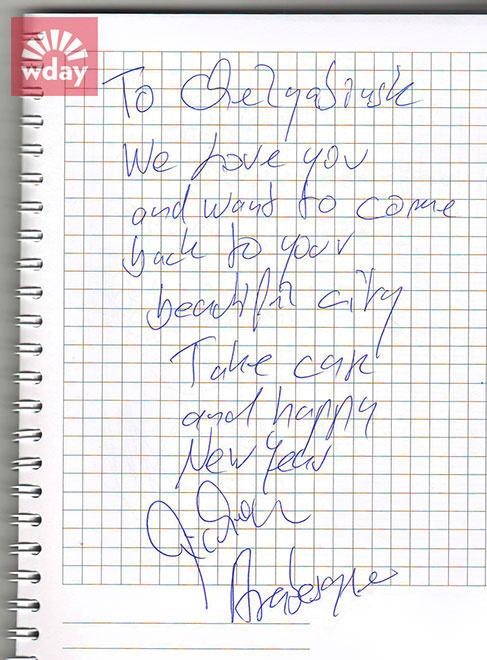 wday
To Chelyabinsk
We love you
and want to come
back to your
beautiful city
Take care
and happy
New Year
Arabesque